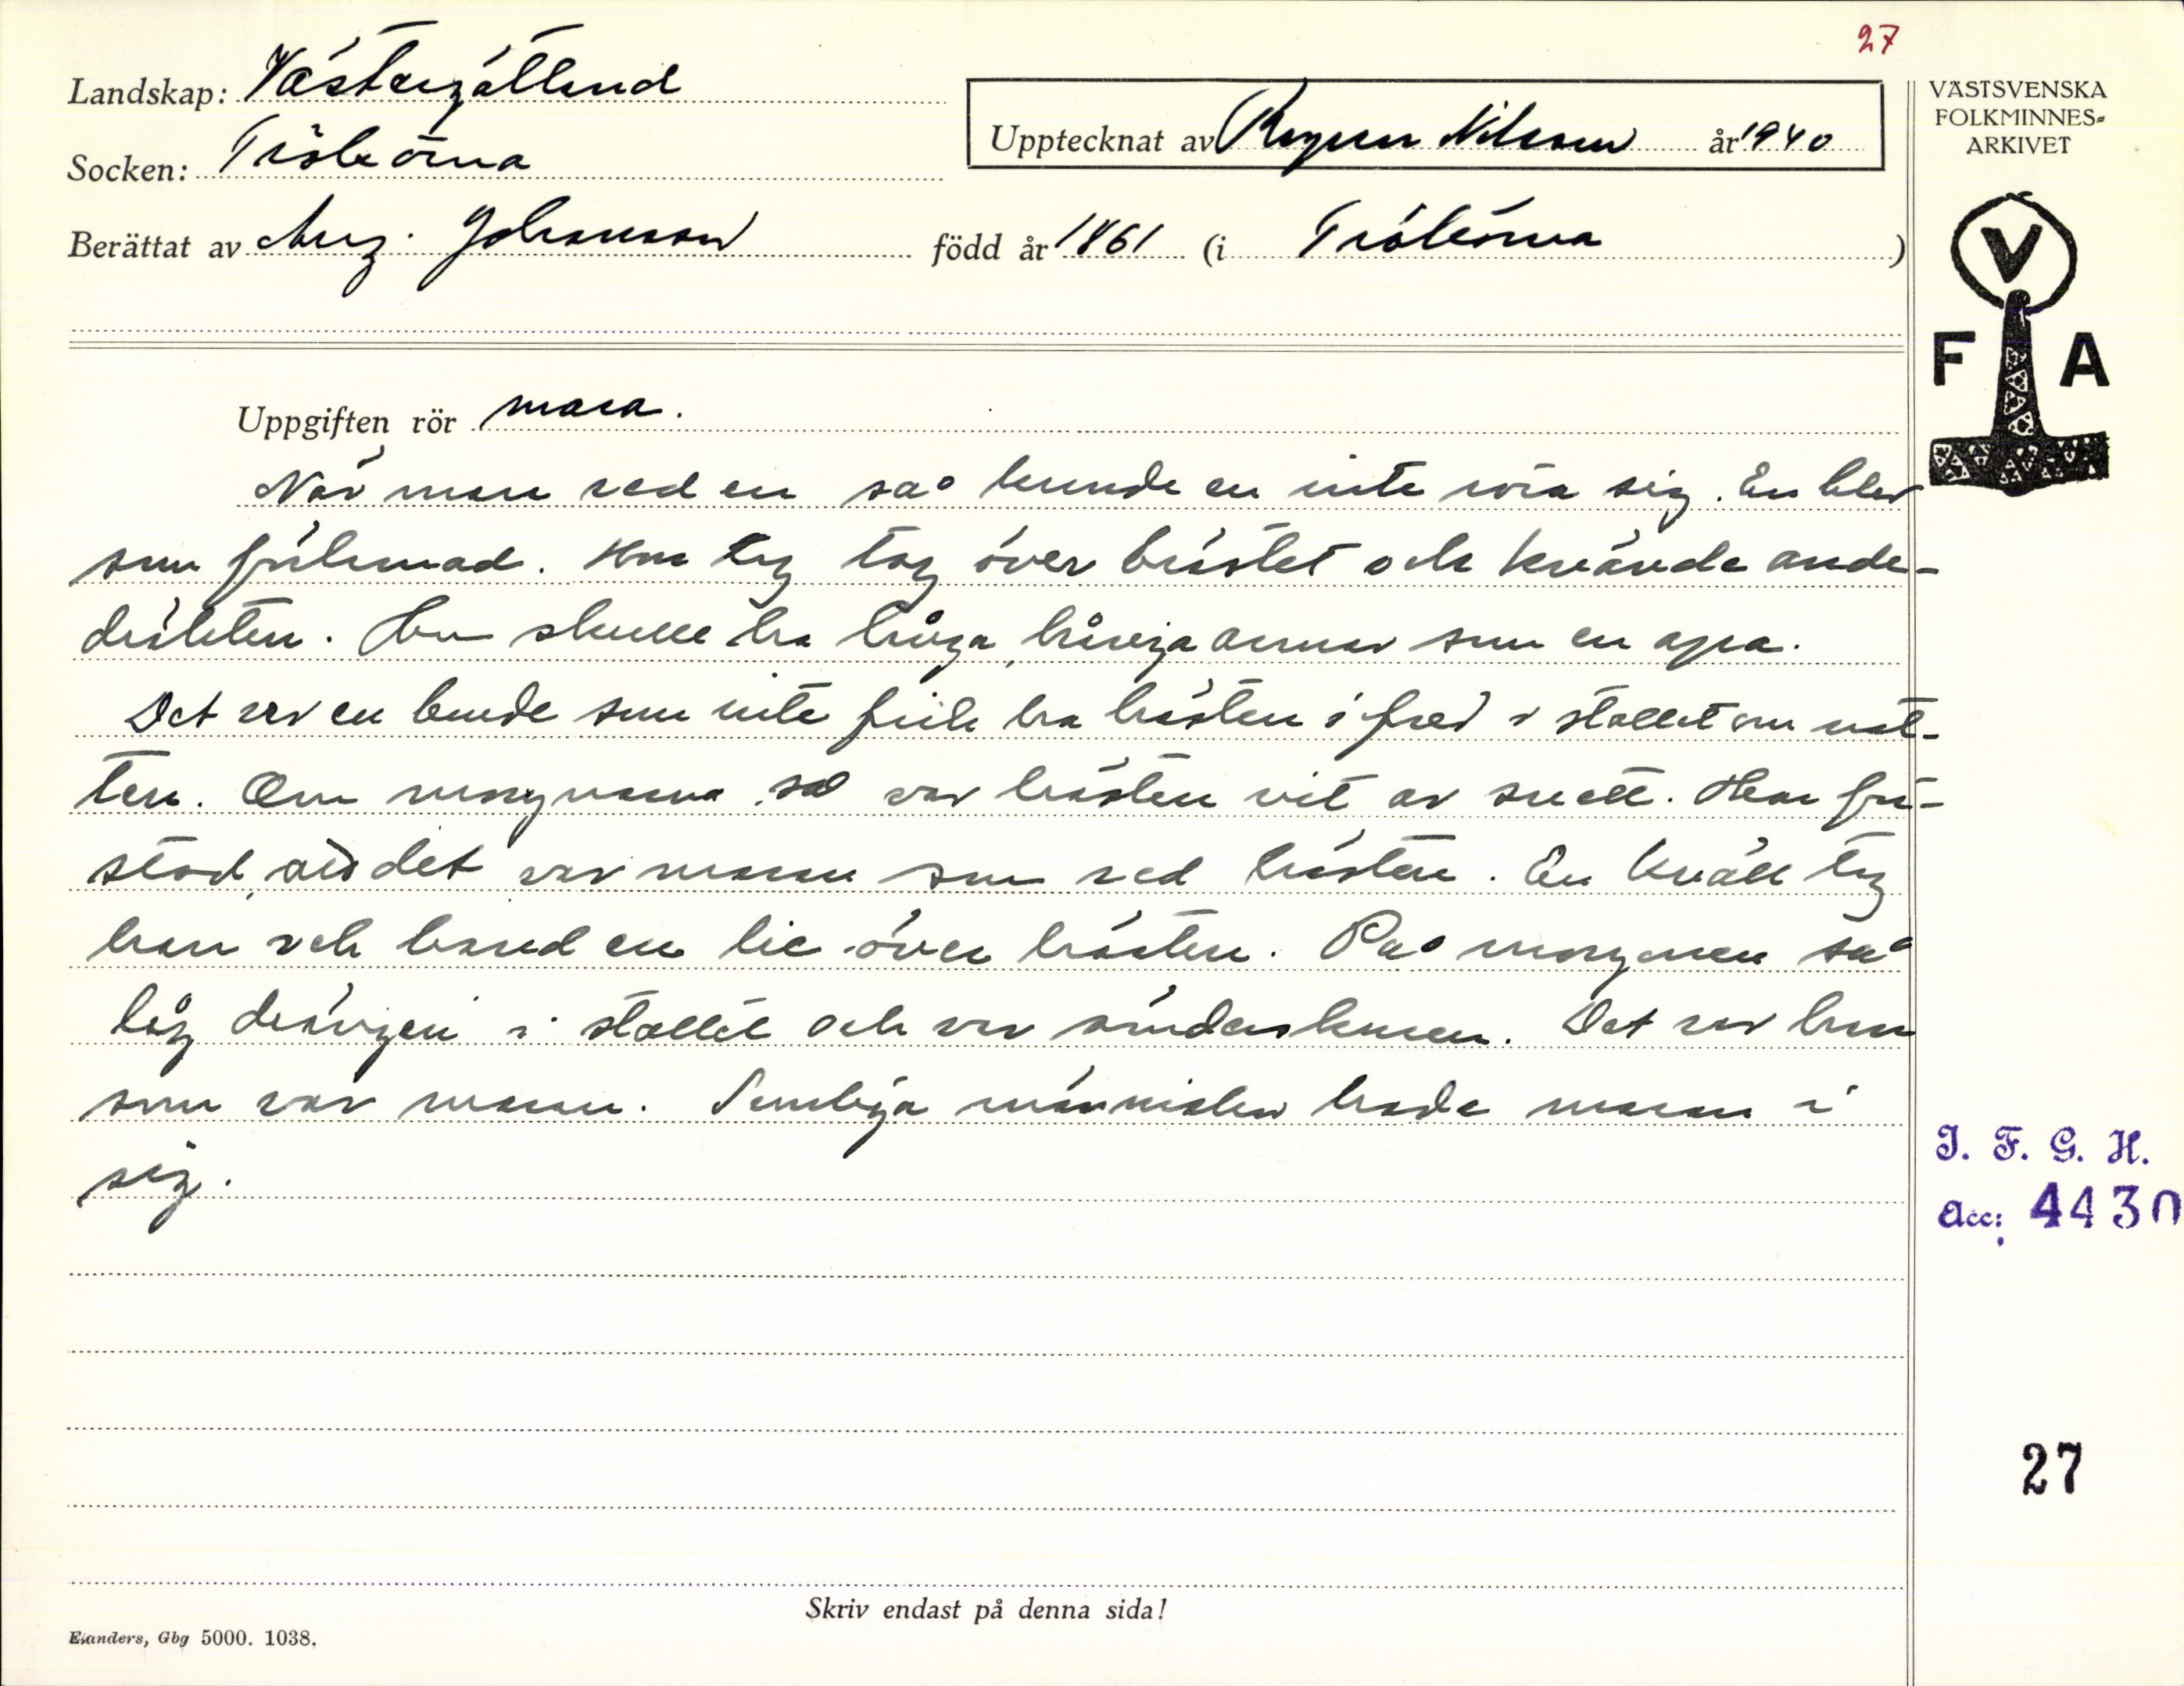 27
Landskap: Västergötland
Socken: Trökörna
Upptecknat av Ragnar Nilsson år 1940
Berättat av Aug. Johansson född år 1861 (i Trökörna)
VÄSTSVENSKA
FOLKMINNES=
ARKIVET
V
F A
Uppgiften rör mara.
När maran red en så kunde en inte röra sig. En blev
som förlamad. Hon tog tag över bröstet och kvävde ande-
dräkten. Hon skulle ha långa, håriga armar som en apa.
Det var en bonde som inte fick ha hästen i fred i stallet om nat-
ten. Om morgnarna så var hästen vit av svett. Han för-
stod, att det var maran som red hästen. En kväll tog
han och band en lie över hästen. På morgonen så
låg drängen i stallet och var sönderskuren. Det var han
som var maran. Somliga människor hade maran i
sig.
I. F. G. H.
Acc: 4430
27
Skriv endast på denna sida!
Elanders, Gbg 5000. 1038.